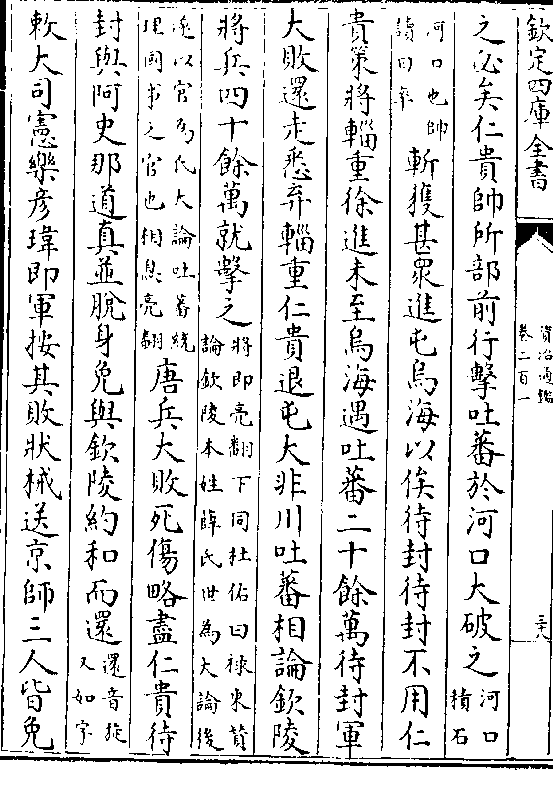 欽定四庫全書
資治通鑑
卷二百一
之必矣仁貴帥所部前行擊吐蕃於河口大破之河口積石
河口也帥讀曰率斬獲甚眾進屯烏海以俟待封待封不用仁
貴策將輜重徐進未至烏海遇吐蕃二十餘萬待封軍
大敗還走悉弃輜重仁貴退屯大非川吐蕃相論欽陵
將兵四十餘萬就擊之將即亮翻下同杜佑曰祿東賛論欽陵本姓薛氏世為大論後
遂以官為氏大論吐蕃統理國事之官也相息亮翻唐兵大敗死傷略盡仁貴待
封與阿史那道真並脫身免與欽陵約和而還還音旋又如字
敕大司憲樂彦瑋即軍按其敗狀械送京師三人皆免